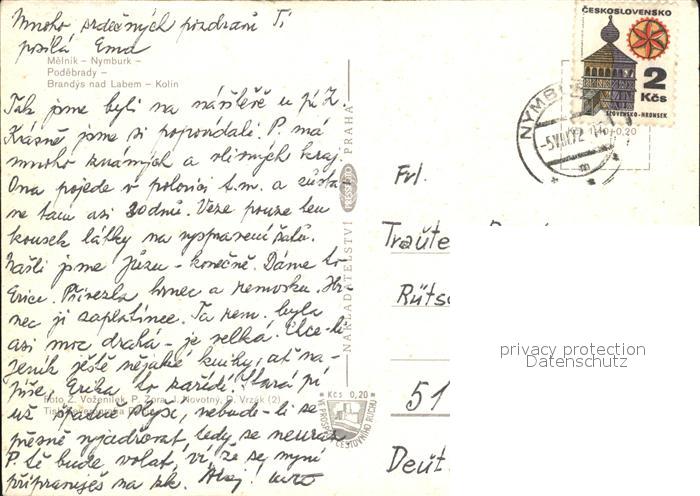 Mnoho srdečných pozdravů Ti
posílá Ema
Mělník – Nymburk –
Poděbrady –
Brandýs nad Labem – Kolín
Tak jsme byli na návštěvě u
Krásně jsme si popovídali. P. má
mnoho známých a vlivných kraj.
Ona pojede v polovici t.m. a zůsta
ne tam asi 30 dnů. Veze pouze ten
kousek látky na vyspravení šatů.
Našli jsme – konečně. Dáme to
Erice. Přivezla hrnec a remosku. Hr-
nec jí zaplatíme. Ta rem. byla
asi moc drahá – je velká. Chce-li
Zeník ještě nějaké knihy, ať na-
píše, Erika to zařídí. Stará pí
už špatně slyší, nebude-li se
přesně vyjadřovat tedy se neuraz
P. tě bude volat, ví, že se nyní
připravuješ na zk. Ahoj!
Foto Z. Voženílek, P. Zora, J. Novotný, D. Vrzák (2)
NAKLADATELSTVÍ PRESSFOTO PRAHA
Kčs 0,20
VE PROSPĚCH CESTOVNÍHO RUCHU
ČESKOSLOVENSKO
2
Kčs
SLOVENSKO-HRONSEK
NYMBURK
-5.VIII.72
1,40+0,20
Frl.
Traute
Rüts
51
Deut
privacy protection
Datenschutz